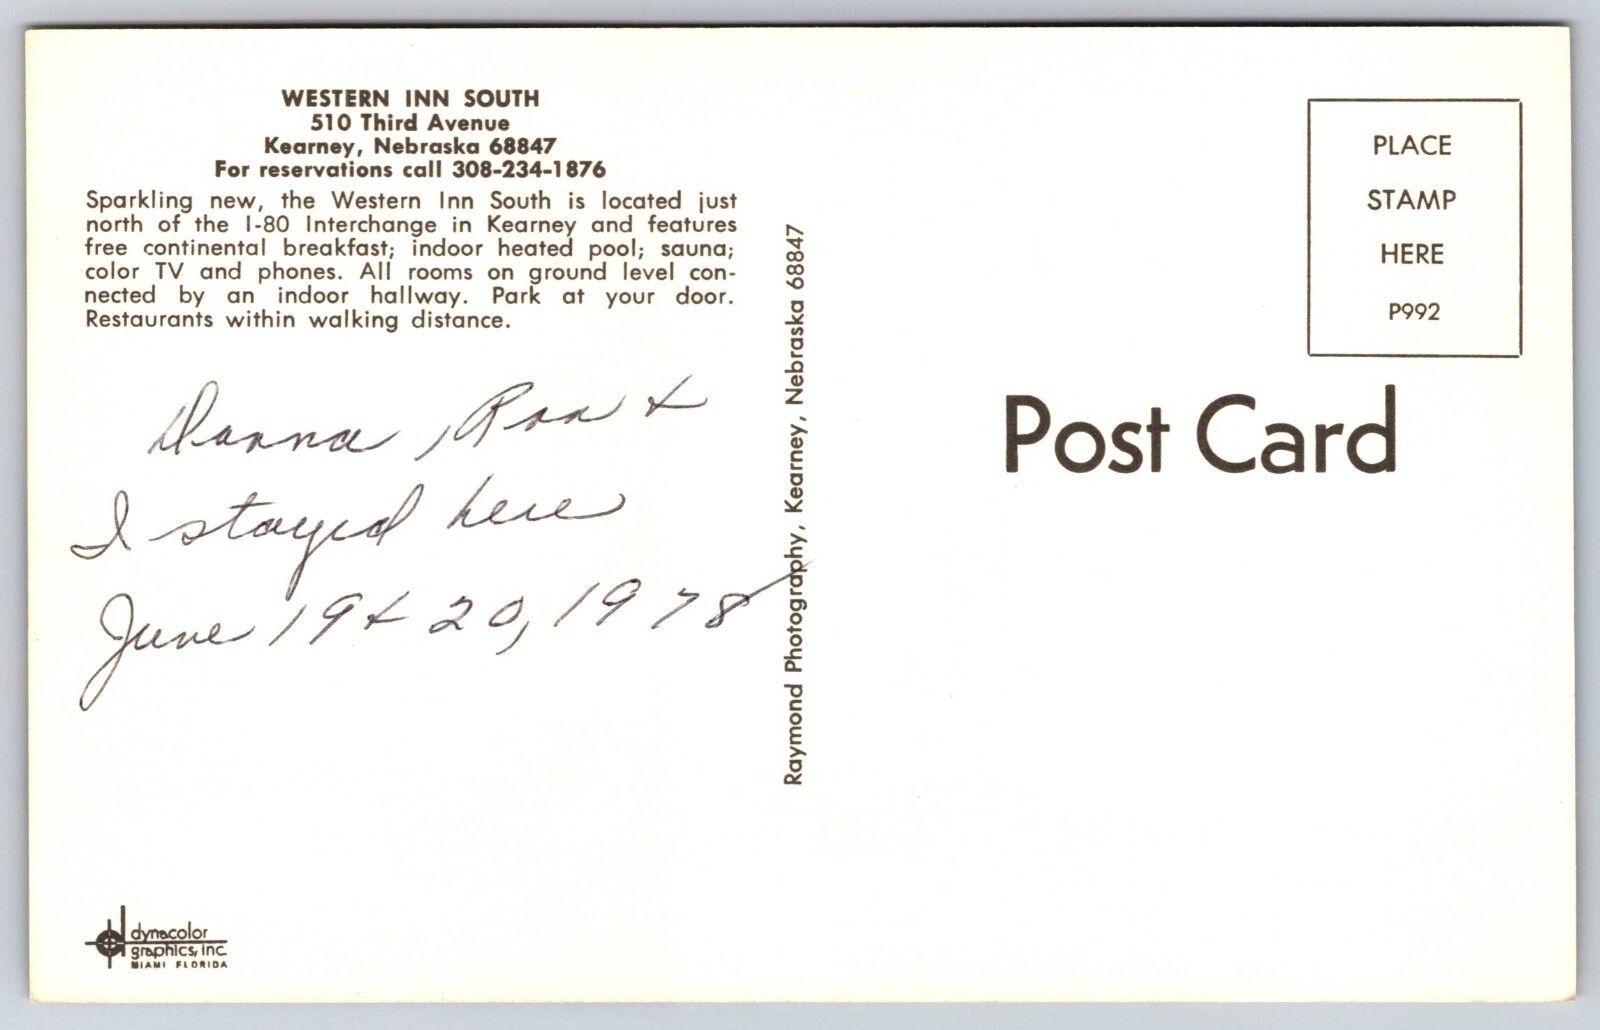 WESTERN INN SOUTH
510 Third Avenue
Kearney, Nebraska 68847
For reservations call 308-234-1876
Sparkling new, the Western Inn South is located just
north of the I-80 Interchange in Kearney and features
free continental breakfast; indoor heated pool; sauna;
color TV and phones. All rooms on ground level con-
nected by an indoor hallway. Park at your door.
Restaurants within walking distance.
Donna, &
I stayed here
June 19 & 20, 1978
dynacolor
graphics, inc.
MIAMI FLORIDA
Raymond Photography, Kearney, Nebraska 68847
PLACE
STAMP
HERE
P992
Post Card